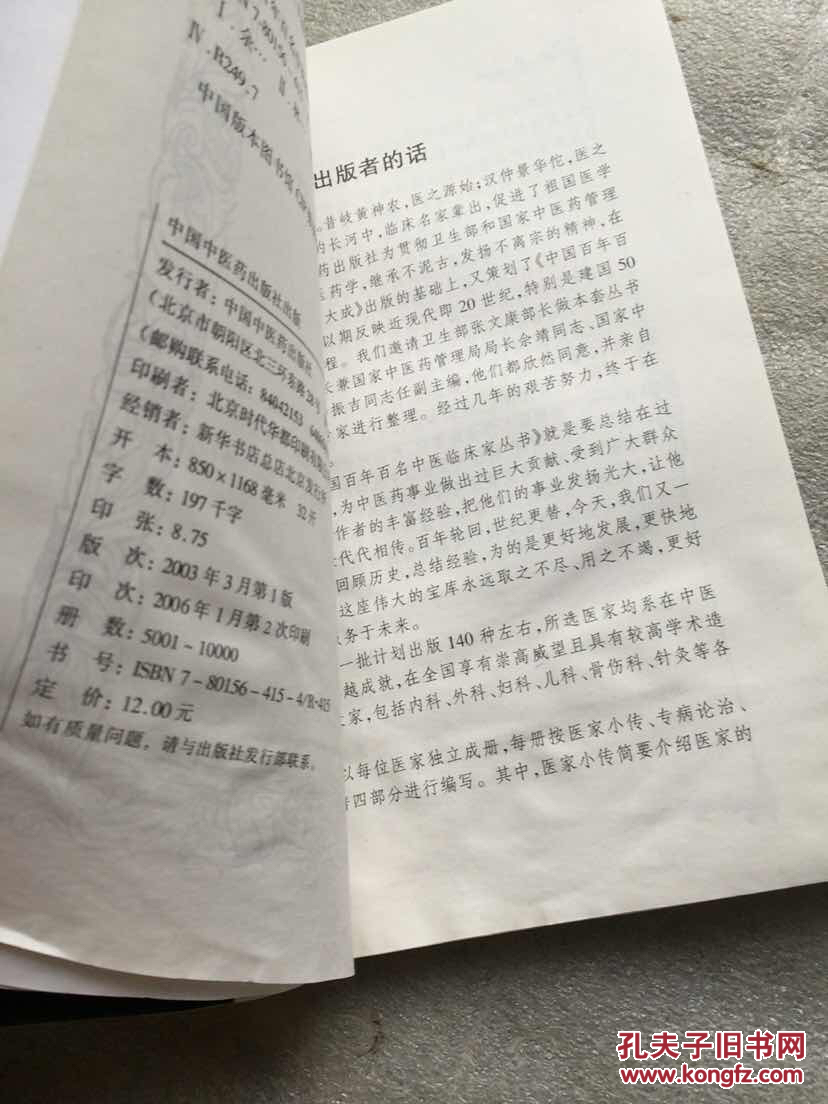 Ⅰ.余… Ⅱ.
Ⅳ.R249.7
中国版本图书馆
中国中医药出版社出版
发行者：中国中医药出版社
（北京市朝阳区北三环东路28号
（邮购联系电话：84042153
印刷者：北京时代华都印刷有限公司
经销者：新华书店总店北京发行所
开 本：850×1168毫米 32开
字 数：197千字
印 张：8.75
版 次：2003年3月第1版
印 次：2006年1月第2次印刷
册 数：5001-10000
书 号：ISBN 7-80156-415-4/R·415
定 价：12.00元
如有质量问题，请与出版社发行部联系。
出版者的话
。昔岐黄神农，医之源始；汉仲景华佗，医之
的长河中，临床名家辈出，促进了祖国医学
药出版社为贯彻卫生部和国家中医药管理
医药学，继承不泥古，发扬不离宗的精神，在
大成》出版的基础上，又策划了《中国百年百
以期反映近现代即20世纪，特别是建国50
程。我们邀请卫生部张文康部长做本套丛书
长兼国家中医药管理局局长佘靖同志、国家中
振吉同志任副主编，他们都欣然同意，并亲自
家进行整理。经过几年的艰苦努力，终于在
国百年百名中医临床家丛书》就是要总结在过
，为中医药事业做出过巨大贡献、受到广大群众
作者的丰富经验，把他们的事业发扬光大，让他
代代相传。百年轮回，世纪更替，今天，我们又一
回顾历史，总结经验，为的是更好地发展，更快地
这座伟大的宝库永远取之不尽、用之不竭，更好
务于未来。
一批计划出版140种左右，所选医家均系在中医
越成就，在全国享有崇高威望且具有较高学术造
家，包括内科、外科、妇科、儿科、骨伤科、针灸等各
以每位医家独立成册，每册按医家小传、专病论治、
四部分进行编写。其中，医家小传简要介绍医家的
孔夫子旧书网
www.kongfz.com